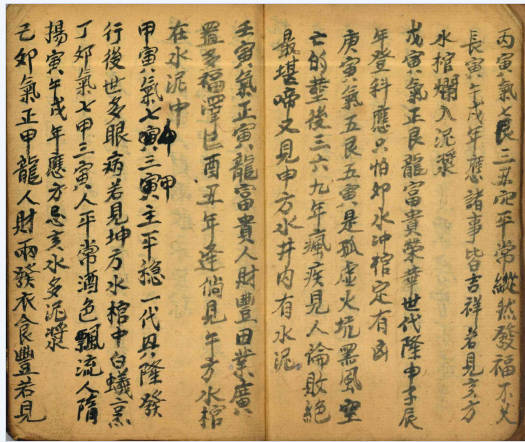 丙寅氣七艮三丑面平常縱然發福不久
長寅午戌年應諸事皆吉祥若見亥方
水棺爛入泥漿
戊寅氣正艮龍富貴榮華世代隆申子辰
年登科應只怕卯水冲棺定有凶
庚寅氣五艮五寅是孤虛火坑黑風空
亡的葬後三六九年瘋疾見人論敗絕
最堪啼又見申方水井內有水泥
壬寅氣正寅龍富貴人財豐田業廣
置多福澤巳酉丑年逢倘見午方水棺
在水泥中
甲寅氣七寅三甲寅主平穩一代興隆發
行後世多眼病若見坤方水棺中白蟻窯
丁卯氣七甲三寅人平常酒色飄流人隋
揚寅午戌年應方忌亥水多泥漿
己卯氣正甲龍人財兩發衣食豐若見